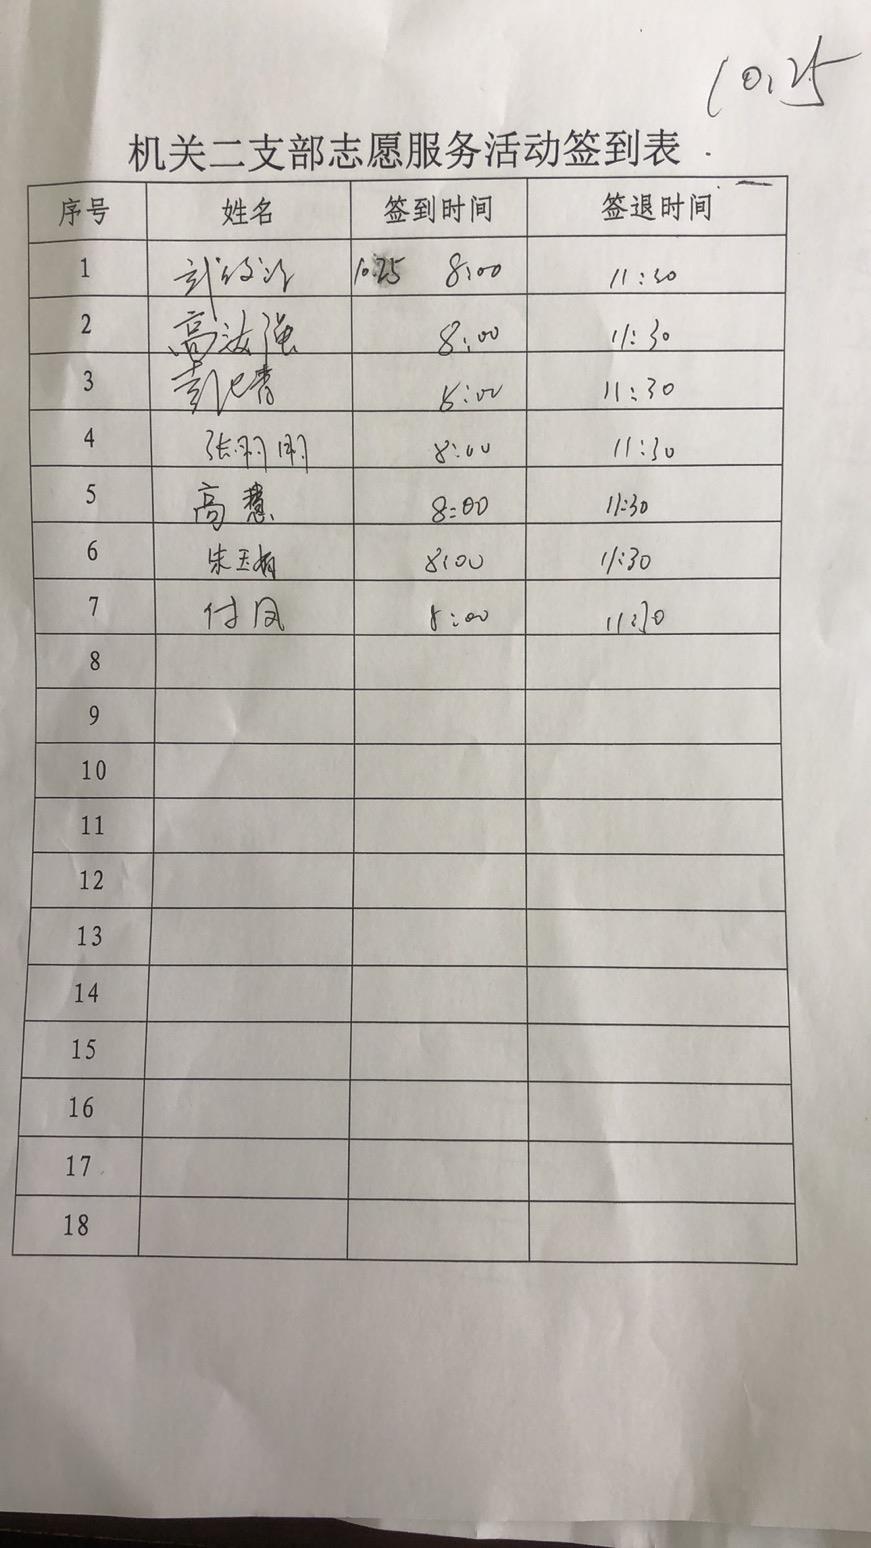 10.25
机关二支部志愿服务活动签到表
序号 姓名 签到时间 签退时间
1 10.25 8:00 11:30
2 高 强 8:00 11:30
3 8:00 11:30
4 张明明 8:00 11:30
5 高慧 8:00 11:30
6 朱玉娟 8:00 11:30
7 付凤 8:00 11:30
8
9
10
11
12
13
14
15
16
17
18